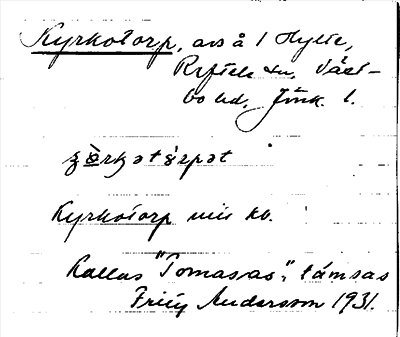 Kyrkotorp, avs å 1 Hylte,
Reftele sn, Väst-
bo hd, Jönk. l.
Kyrkotorp nii kb.
Kallas "Tomasas", támsas
Fritz Andersson 1931.